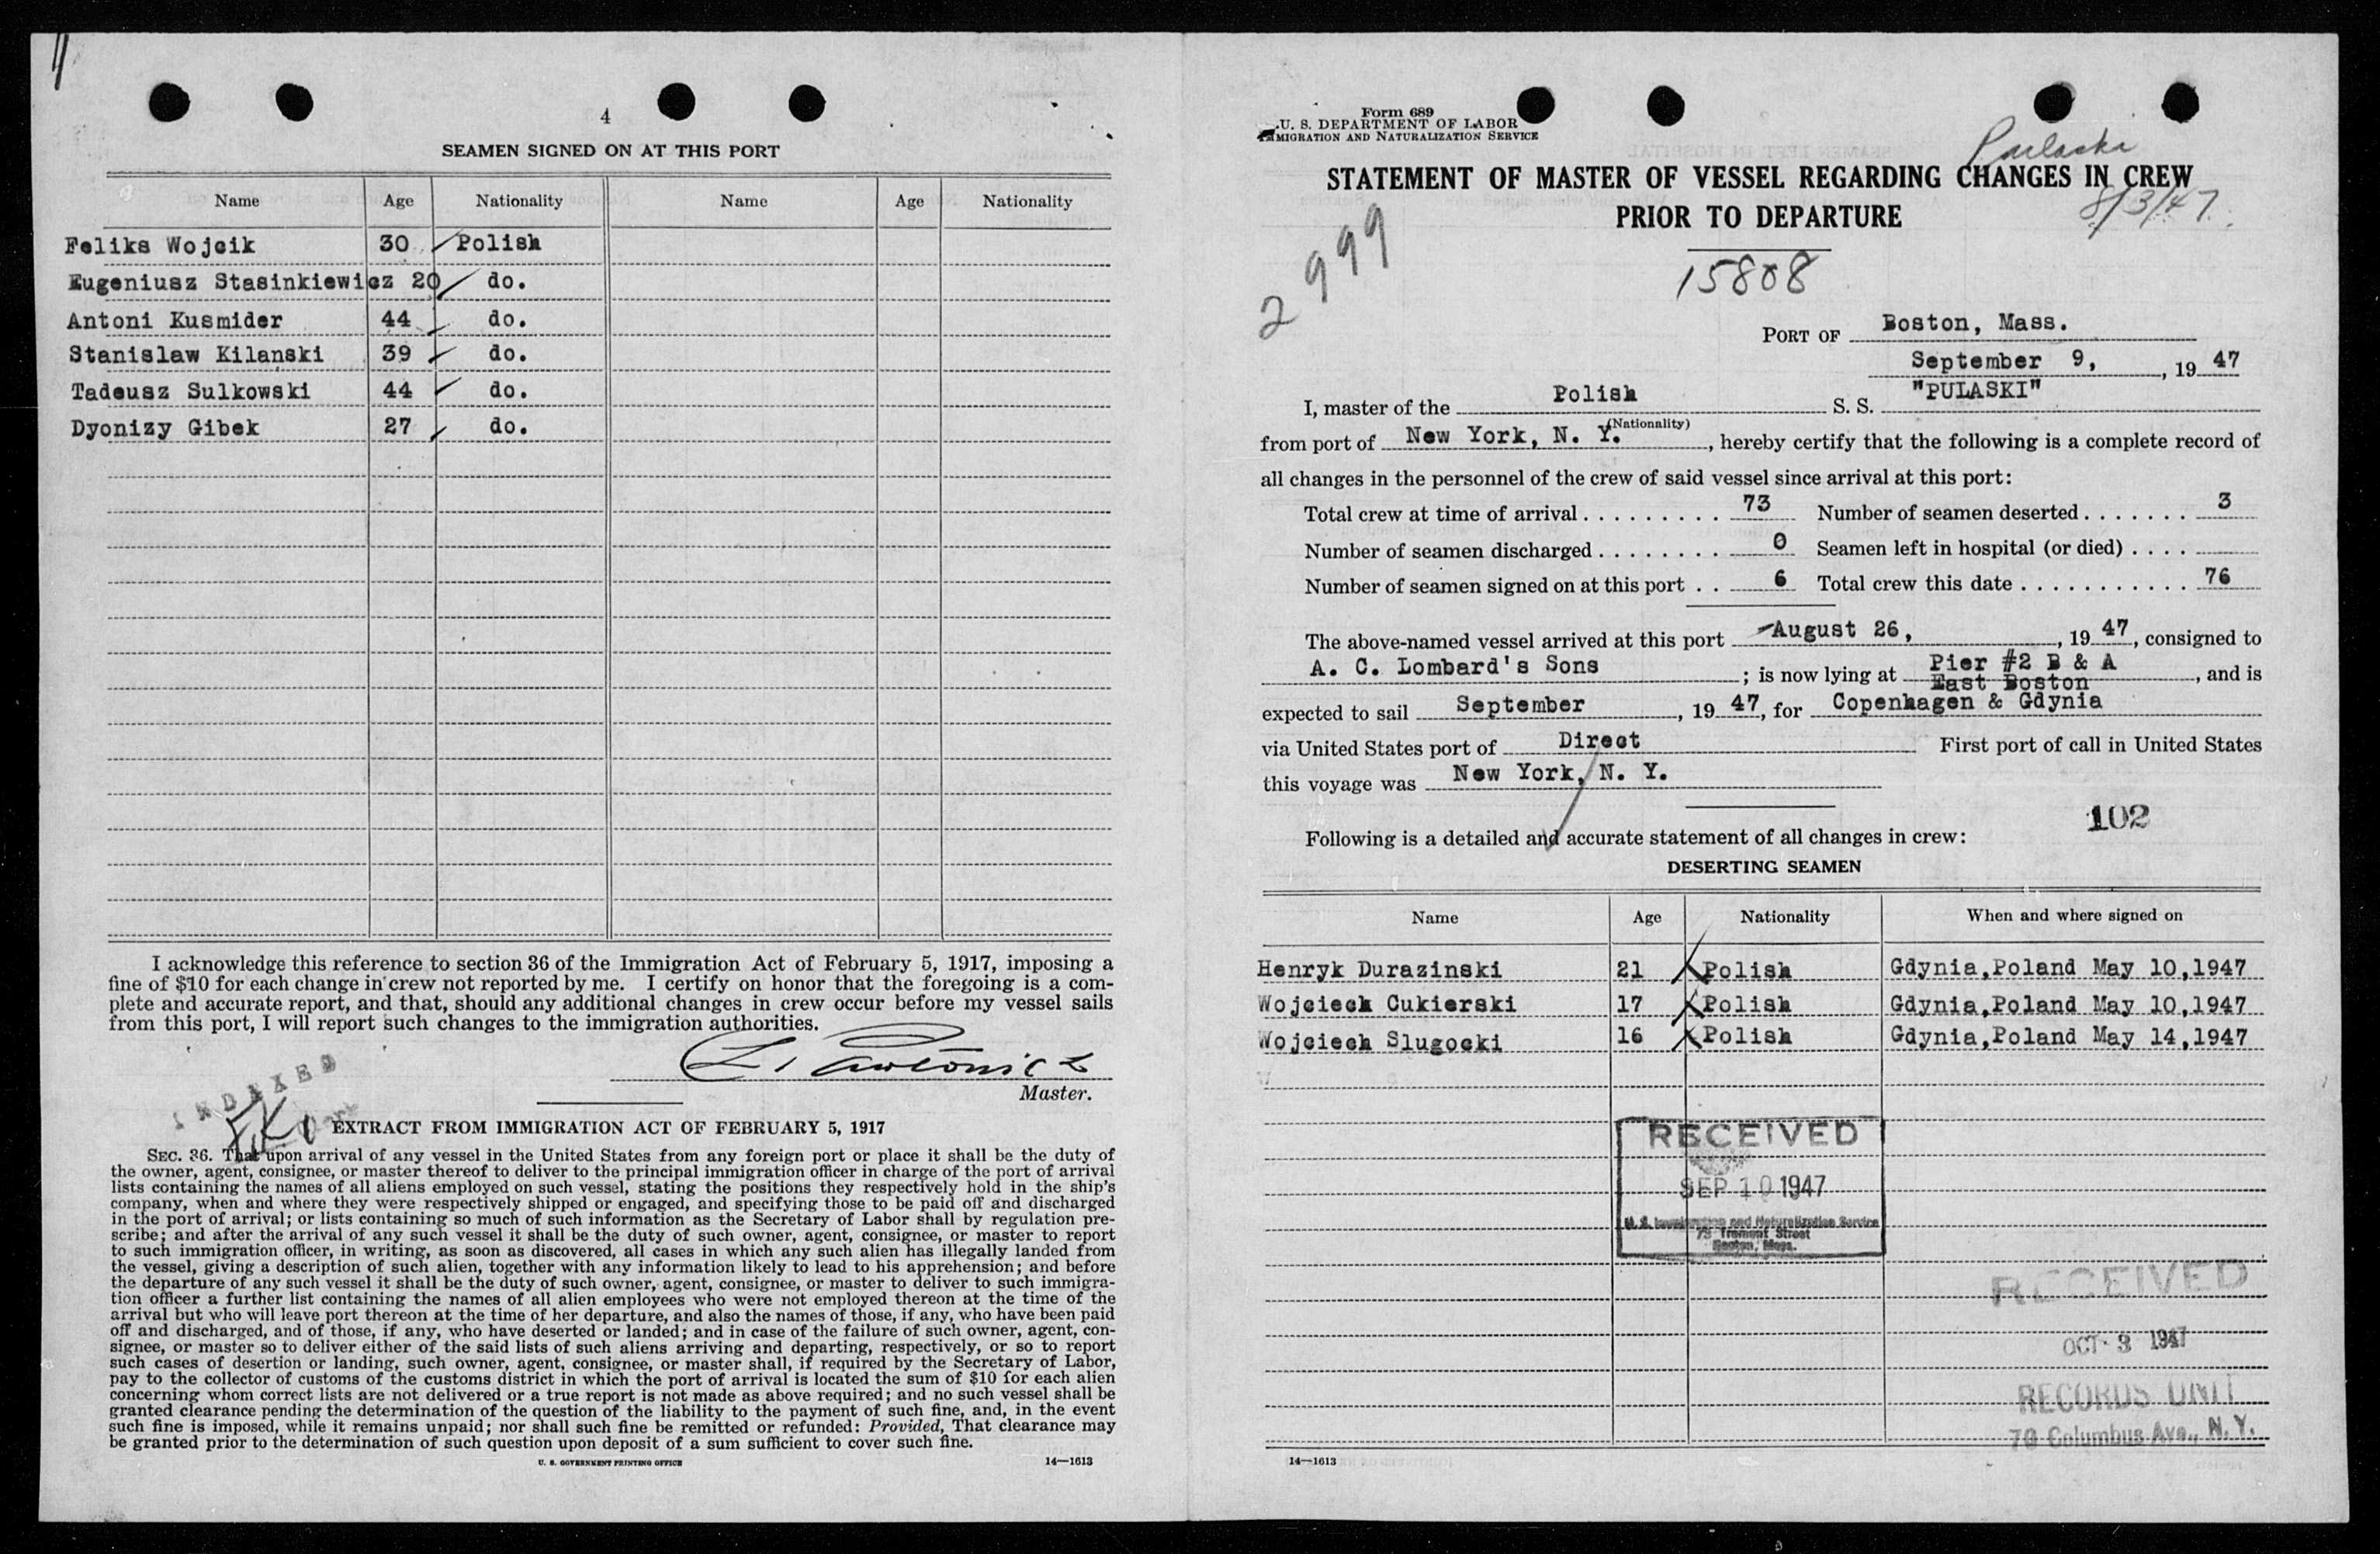 4
SEAMEN SIGNED ON AT THIS PORT
Name Age Nationality Name Age Nationality
Feliks Wojcik 30 Polish
Eugeniusz Stasinkiewicz 20 do.
Antoni Kusmider 44 do.
Stanislaw Kilanski 39 do.
Tadeusz Sulkowski 44 do.
Dyonizy Gibek 27 do.
I acknowledge this reference to section 36 of the Immigration Act of February 5, 1917, imposing a
fine of $10 for each change in crew not reported by me. I certify on honor that the foregoing is a com-
plete and accurate report, and that, should any additional changes in crew occur before my vessel sails
from this port, I will report such changes to the immigration authorities.
Master.
INDEXED
EXTRACT FROM IMMIGRATION ACT OF FEBRUARY 5, 1917
SEC. 36. That upon arrival of any vessel in the United States from any foreign port or place it shall be the duty of
the owner, agent, consignee, or master thereof to deliver to the principal immigration officer in charge of the port of arrival
lists containing the names of all aliens employed on such vessel, stating the positions they respectively hold in the ship's
company, when and where they were respectively shipped or engaged, and specifying those to be paid off and discharged
in the port of arrival; or lists containing so much of such information as the Secretary of Labor shall by regulation pre-
scribe; and after the arrival of any such vessel it shall be the duty of such owner, agent, consignee, or master to report
to such immigration officer, in writing, as soon as discovered, all cases in which any such alien has illegally landed from
the vessel, giving a description of such alien, together with any information likely to lead to his apprehension; and before
the departure of any such vessel it shall be the duty of such owner, agent, consignee, or master to deliver to such immigra-
tion officer a further list containing the names of all alien employees who were not employed thereon at the time of the
arrival but who will leave port thereon at the time of her departure, and also the names of those, if any, who have been paid
off and discharged, and of those, if any, who have deserted or landed; and in case of the failure of such owner, agent, con-
signee, or master so to deliver either of the said lists of such aliens arriving and departing, respectively, or so to report
such cases of desertion or landing, such owner, agent, consignee, or master shall, if required by the Secretary of Labor,
pay to the collector of customs of the customs district in which the port of arrival is located the sum of $10 for each alien
concerning whom correct lists are not delivered or a true report is not made as above required; and no such vessel shall be
granted clearance pending the determination of the question of the liability to the payment of such fine, and, in the event
such fine is imposed, while it remains unpaid; nor shall such fine be remitted or refunded: Provided, That clearance may
be granted prior to the determination of such question upon deposit of a sum sufficient to cover such fine.
U. S. GOVERNMENT PRINTING OFFICE 14—1613
Form 689
U. S. DEPARTMENT OF LABOR
IMMIGRATION AND NATURALIZATION SERVICE
Pulaski
STATEMENT OF MASTER OF VESSEL REGARDING CHANGES IN CREW
PRIOR TO DEPARTURE
8/3/47
2999
15808
PORT OF Boston, Mass.
September 9, , 19 47
I, master of the Polish S. S. "PULASKI"
(Nationality)
from port of New York, N. Y. , hereby certify that the following is a complete record of
all changes in the personnel of the crew of said vessel since arrival at this port:
Total crew at time of arrival . . . . . . . . . 73 Number of seamen deserted . . . . . . . 3
Number of seamen discharged . . . . . . . . 0 Seamen left in hospital (or died) . . . .
Number of seamen signed on at this port . . 6 Total crew this date . . . . . . . . . . . 76
The above-named vessel arrived at this port August 26, , 19 47, consigned to
A. C. Lombard's Sons ; is now lying at Pier #2 B & A East Boston , and is
expected to sail September , 19 47, for Copenhagen & Gdynia
via United States port of Direct First port of call in United States
this voyage was New York, N. Y.
102
Following is a detailed and accurate statement of all changes in crew:
DESERTING SEAMEN
Name Age Nationality When and where signed on
Henryk Durazinski 21 Polish Gdynia,Poland May 10,1947
Wojciech Cukierski 17 Polish Gdynia,Poland May 10,1947
Wojciech Slugocki 16 Polish Gdynia,Poland May 14,1947
RECEIVED
SEP 10 1947
U. S. Immigration and Naturalization Service
73 Tremont Street
Boston, Mass.
RECEIVED
OCT 3 1947
RECORDS UNIT
70 Columbus Ave., N. Y.
14—1613